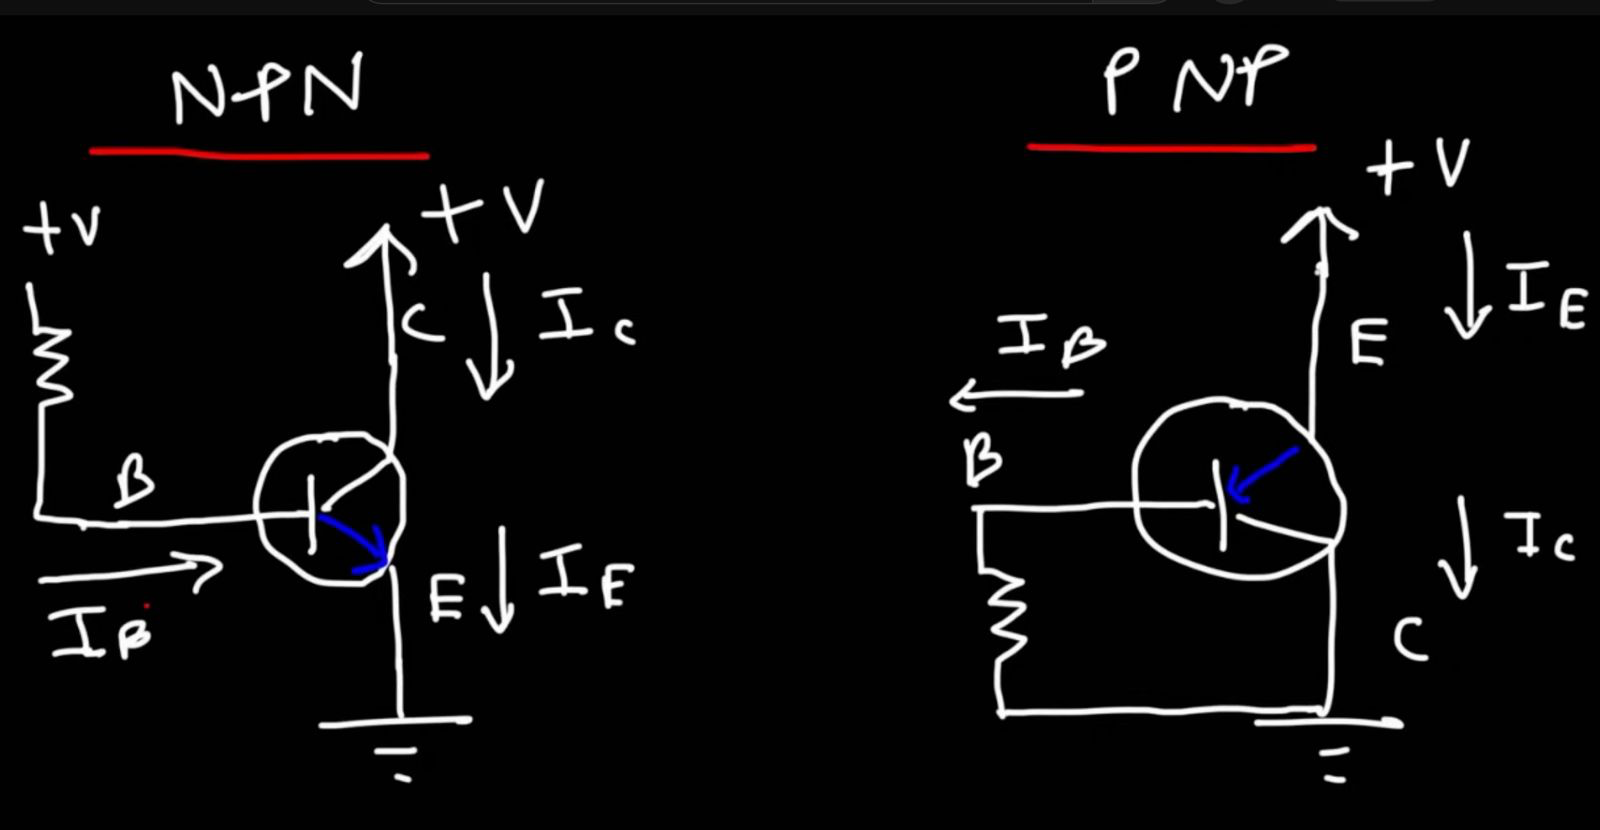 NPN
+V
+V
C
IC
B
IB
E
IE
PNP
+V
IE
E
IB
B
IC
C